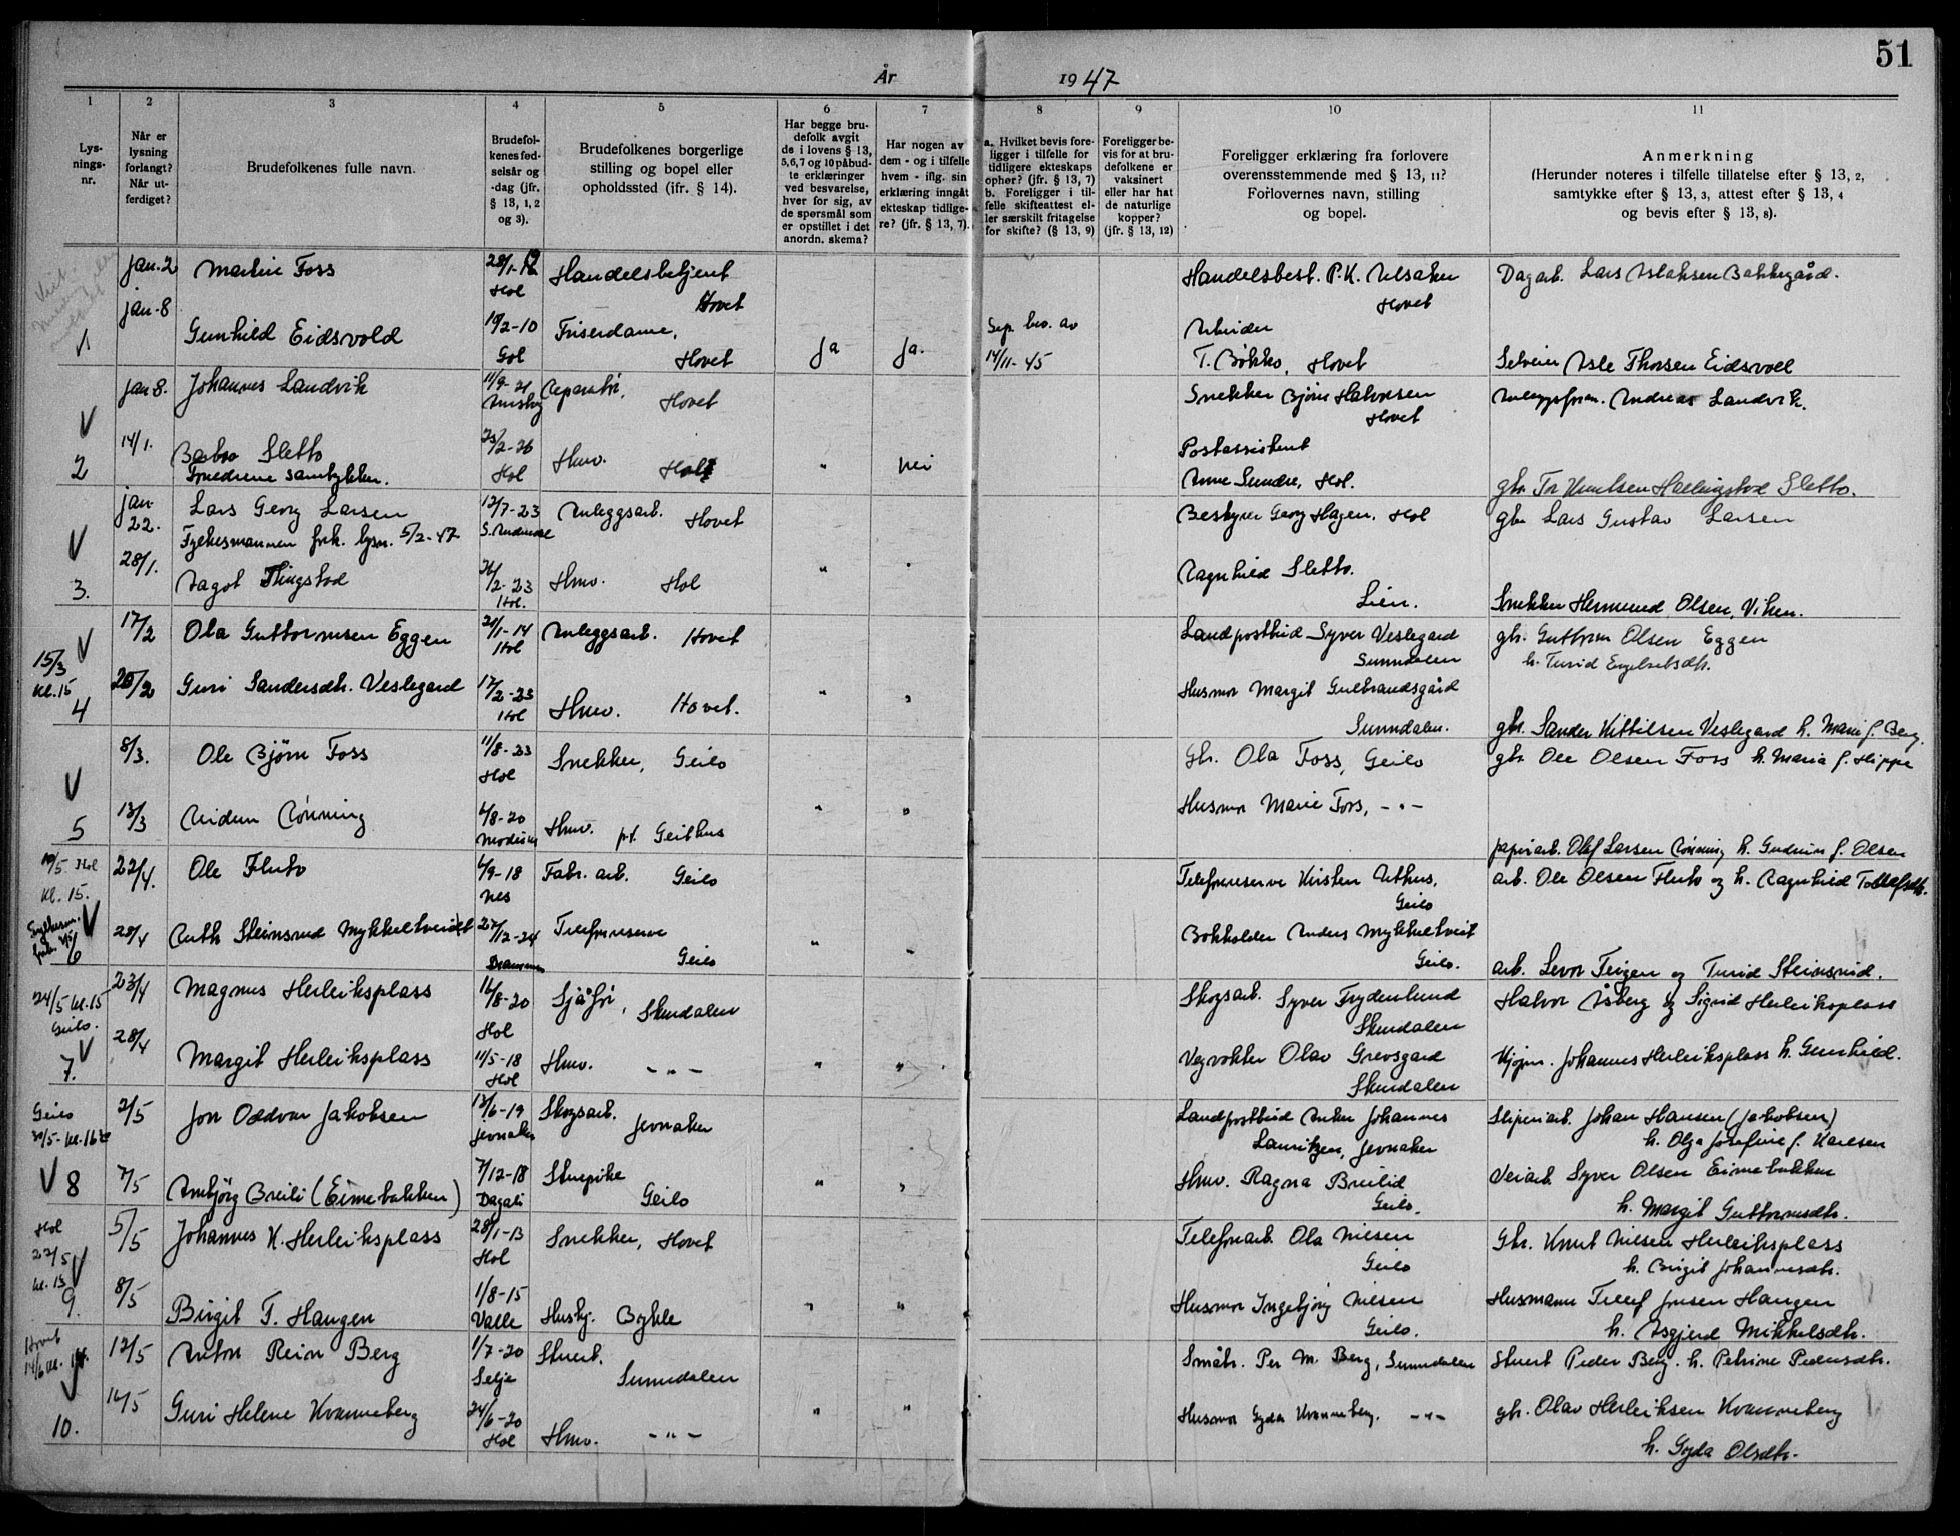 51
År 1947
1 2 3 4 5 6 7 8 9 10 11
Lysningsnr.
Når er lysning forlangt? Når utferdiget?
Brudefolkenes fulle navn.
Brudefolkenes fødselsår og -dag (jfr. § 13, 1, 2 og 3).
Brudefolkenes borgerlige stilling og bopel eller opholdssted (ifr. § 14).
Har begge brudefolk avgit de i lovens § 13, 5, 6, 7 og 10 påbudte erklæringer ved besvarelse, hver for sig, av de spørsmål som er opstillet i det anordn. skema?
Har nogen av dem - og i tilfelle hvem - iflg. sin erklæring inngåt ekteskap tidligere? (jfr. § 13, 7).
a. Hvilket bevis foreligger i tilfelle for tidligere ekteskaps ophør? (jfr. § 13, 7) b. Foreligger i tilfelle skifteattest eller særskilt fritagelse for skifte? (§ 13, 9)
Foreligger bevis for at brudefolkene er vaksinert eller har hat de naturlige kopper? (jfr. § 13, 12)
Foreligger erklæring fra forlovere overensstemmende med § 13, 11? Forlovernes navn, stilling og bopel.
Anmerkning (Herunder noteres i tilfelle tillatelse efter § 13, 2, samtykke efter § 13, 3, attest efter § 13, 4 og bevis efter § 13, 8).
jan. 2 Martin Foss 28/1-12 Hol Handelsbetjent Hovet Handelsbest. P.K. Ulsaker Hovet Dagarb. Lars Aslaksen Bakkegård.
1 jan-8 Gunhild Eidsvold 19/2-10 Gol Friserdame, Hovet Ja Ja. Sep. bev. av 14/11-45 Arbeider T. Bøkko, Hovet Selveier Asle Thorsen Eidsvoll
jan 8. Johannes Landvik 11/9-21 Reparatør, Hovet Snekker Bjørn Halvorsen Hovet Anleggsform. Andreas Landvik.
2 14/1. Barbro Sletto 23/2-26 Hol Hmv. Hol " nei Postassistent Anne Sundre, Hol.
Foreldrene samtykker. gbr. Tor Knutsen Hallingstad Sletto.
jan 22. Lars Georg Larsen 12/7-23 Anleggsarb. Hovet Bestyrer Georg Hagen, Hol gbr Lars Gustav Larsen
Fylkesmannen frik. lysn. 5/2-47
3. 28/1. Aagot Tingstad 26/2-23 Hol. Hmv. Hol " " Ragnhild Sletto. Lien. Snekker Hermund Olsen, Viken.
17/2 Ola Guttormsen Eggen 20/1-14 Hol Anleggsarb. Hovet Landpostbud Syver Veslegard Sunndalen gbr. Guttorm Olsen Eggen
h. Turid Engebretsdtr.
15/3 kl. 15
4 20/2 Guri Sandersdtr. Veslegard 17/2-23 Hol Hmv. Hovet. " " Husmor Margit Gulbrandsgård Sunndalen. gbr. Sander Kittilsen Veslegard h. Mari f. Berg.
8/3. Ole Bjørn Foss 11/8-23 Hol Snekker, Geilo Gbr. Ola Foss, Geilo gbr. Ole Olsen Foss h. Maria f. Hippe
5 13/3 Reidun Rønning 4/8-20 Modum Hmv. p.t. Geithus " " Husmor Marie Foss, -"-
papirarb. Olaf Larsen Rønning h. Gudrun f. Olsen
10/5 Hol kl. 15.
22/4. Ole Fluto 4/9-18 Nes Fabr. arb. Geilo Telefonreserve Kirsten Uthus, Geilo arb. Ole Olsen Fluto og h. Ragnhild Tollefsdtr.
6 28/4 Ruth Steinsrud Mykkeltveidt 27/12-24 Drammen Telefonreserve Geilo " " Bokholder Anders Mykkeltveit Geilo. arb. Levor Teigen og Turid Steinsrud.
24/5 kl. 15 Geilo.
23/4 Magnus Herleiksplass 16/8-20 Hol Sjåfør, Skurdalen Skogsarb. Syver Frydenlund Skurdalen Halvor Åsberg og Sigrid Herleiksplass
7. 28/4 Margit Herleiksplass 11/5-18 Hol Hmv. -"- " " Vegvokter Olav Grevsgard Skurdalen Kjøpm. Johannes Herleiksplass h. Gunhild.
Geilo
2/5 Jon Oddvar Jakobsen 12/6-19 Jevnaker Skogsarb. Jevnaker Landpostbud Anker Johannes Lauritzen, Jevnaker Sliperiarb. Johan Hansen (Jakobsen)
h. Olga Josefine f. Karlsen
8 7/5 Ambjørg Breili (Eimebakken) 7/12-18 Dagali Stuepike Geilo " " Hmv. Ragna Breilid Geilo. Veiarb Syver Olsen Eimebakken
h. Margit Guttormsdtr.
Hol 22/5 kl. 13
5/5 Johannes K. Herleiksplass 28/1-13 Hol Snekker, Hovet Telefonarb. Ola Nilsen Geilo Gbr. Knut Nilsen Herleiksplass
h. Birgit Johannesdtr.
9. 8/5 Birgit T. Haugen 1/8-15 Valle Hushj. Bykle " " Husmor Ingebjørg Nilsen Geilo. Husmann Tellef Jonsen Haugen
h. Asgjerd Mikkelsdtr.
Hovet 14/6 kl.
12/5 Anton Rein Berg 1/7-20 Selje Stuert. Sunndalen Småbr. Per M. Berg, Sunndalen Stuert Peder Berg. h. Petrine Pedersdtr.
10. 16/5 Guri Helene Kvanneberg 24/6-20 Hol Hmv. -"- " " Husmor Gyda Kvanneberg. -"- gbr. Olav Herleiksen Kvanneberg
h. Gyda Olsdtr.